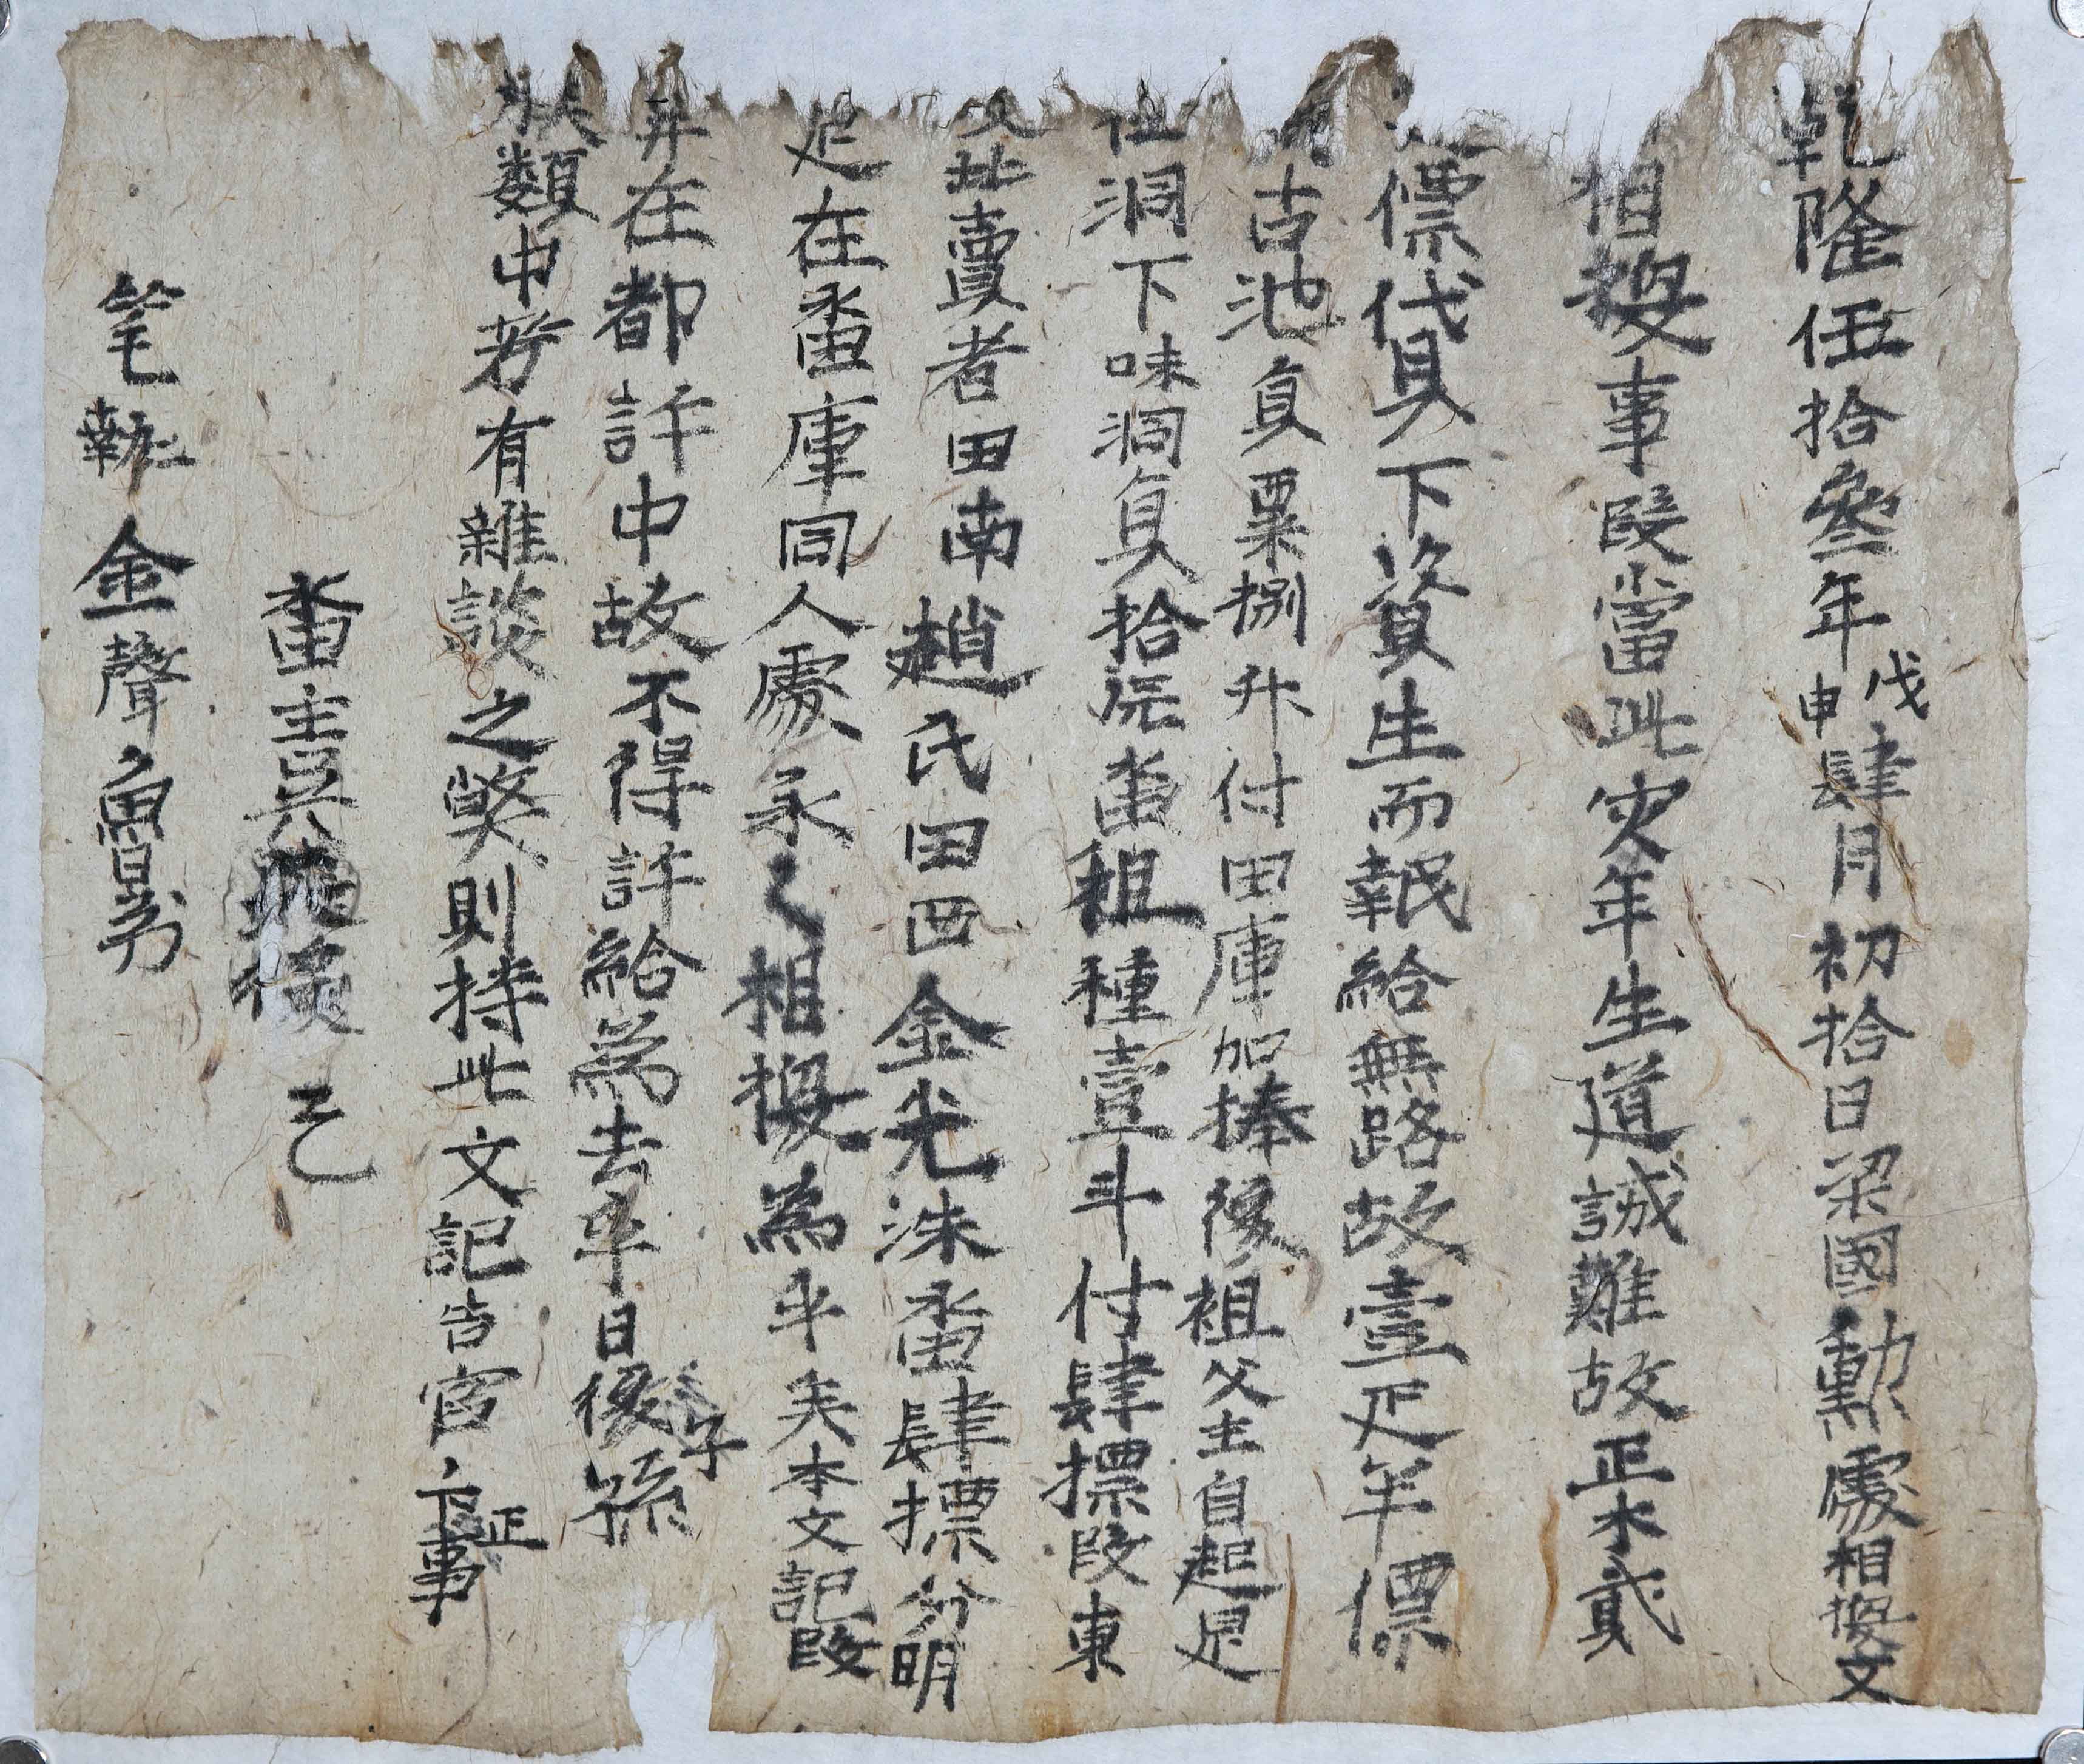 乾隆伍拾叄年戊申肆月初拾日梁國勳處相換文
相換事段當此灾年生道誠難故正木貳
傈貸下資生而報給無路故壹疋半傈
古池員粟捌升付田庫加捧後祖父主自起是
在洞下味洞員拾沉畓租種壹斗付肆摽段東
文此賣者田南趙氏田西金光洙畓肆摽分明
是在畓庫同人處永〻相換為乎矣本文記段
幷在都許中故不得許給為去乎日後子孫
族類中若有雜談之獘則持此文記告官卞正事
畓主吳 [手決]
筆執金聲魯